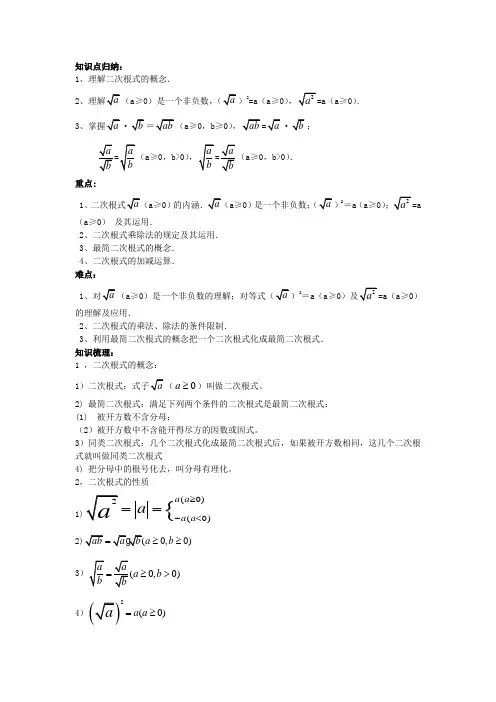 知识点归纳：
1、理解二次根式的概念．
2、理解√a（a≥0）是一个非负数，（√a）²=a（a≥0），√a²=a（a≥0）．
3、掌握√a·√b＝√ab（a≥0，b≥0），√ab=√a·√b；
√a/√b=√(a/b)（a≥0，b>0），√(a/b)=√a/√b（a≥0，b>0）．
重点:
1、二次根式√a（a≥0）的内涵．√a（a≥0）是一个非负数；（√a）²＝a（a≥0）；√a²=a
（a≥0） 及其运用．
2、二次根式乘除法的规定及其运用．
3、最简二次根式的概念．
4、二次根式的加减运算．
难点：
1、对√a（a≥0）是一个非负数的理解；对等式（√a）²＝a（a≥0）及√a²=a（a≥0）
的理解及应用．
2、二次根式的乘法、除法的条件限制．
3、利用最简二次根式的概念把一个二次根式化成最简二次根式．
知识梳理：
1 ，二次根式的概念：
1）二次根式：式子√a（a≥0）叫做二次根式。
2) 最简二次根式：满足下列两个条件的二次根式是最简二次根式：
(1) 被开方数不含分母；
（2）被开方数中不含能开得尽方的因数或因式。
3）同类二次根式：几个二次根式化成最简二次根式后，如果被开方数相同，这几个二次根
式就叫做同类二次根式
4) 把分母中的根号化去，叫分母有理化。
2，二次根式的性质
1) √a²=|a|={a(a≥0) −a(a<0)
2) √ab=√a g√b(a≥0,b≥0)
3）√(a/b)=√a/√b(a≥0,b>0)
4）(√a)²=a(a≥0)